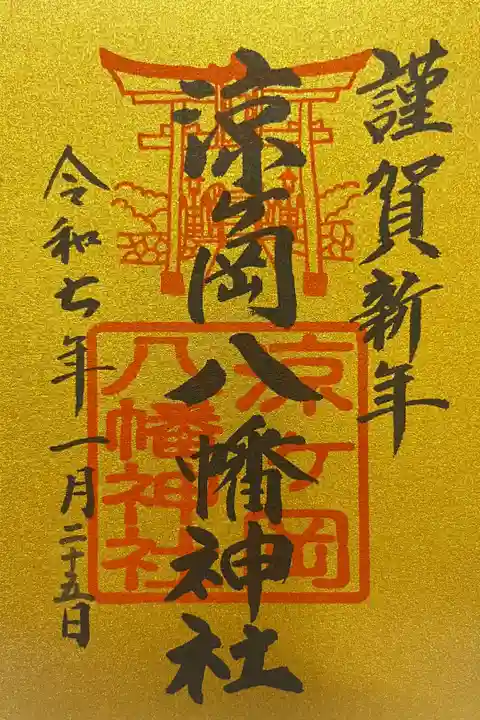 謹賀新年
涼ヶ岡八幡神社
令和七年一月二十五日
涼ケ岡
八幡神社